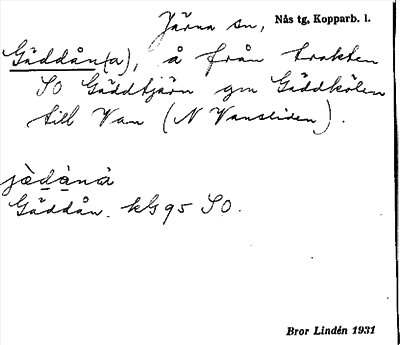 Järna sn, Nås tg, Kopparb. l.
Gäddån(a), å från trakten
SO Gäddtjärn gm Gäddkölen
till Van (N Vansliden).
jä̀då̀nå
Gäddån. kG 95 SO.
Bror Lindén 1931